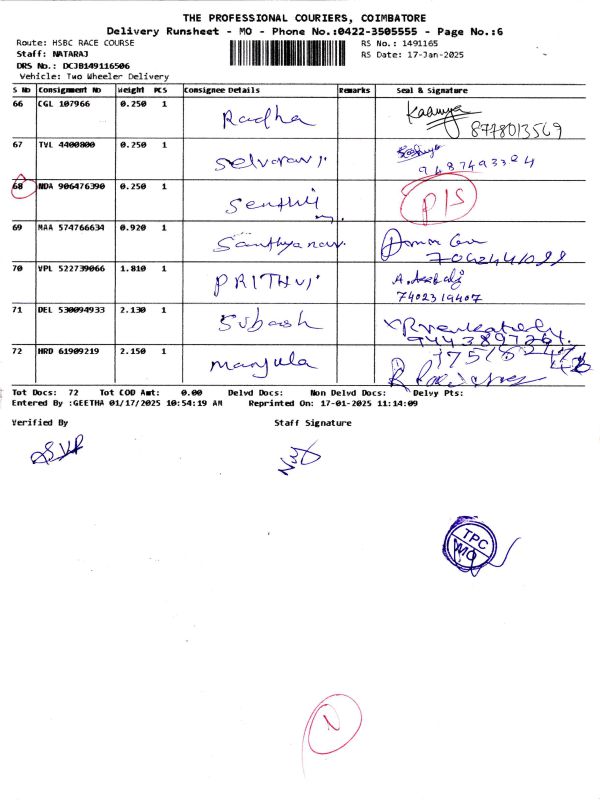 THE PROFESSIONAL COURIERS, COIMBATORE
Delivery Runsheet - MO - Phone No.:0422-3505555 - Page No.:6
Route: HSBC RACE COURSE
RS No.: 1491165
Staff: NATARAJ
RS Date: 17-Jan-2025
DRS No.: DCJB149116506
Vehicle: Two Wheeler Delivery
S No Consignment No Weight PCS Consignee Details Remarks Seal & Signature
66 CGL 107966 0.250 1 Radha Kaavya
8778013569
67 TVL 4400800 0.250 1 Selvaravi
9687493384
68 NDA 906476390 0.250 1 Senthil P/S
69 MAA 574766634 0.920 1
70 VPL 522739066 1.810 1 PRITHVI
7402319407
71 DEL 530094933 2.130 1 Subash
72 HRD 61909219 2.150 1 Manjula
Tot Docs: 72 Tot COD Amt: 0.00 Delvd Docs: Non Delvd Docs: Delvy Pts:
Entered By :GEETHA 01/17/2025 10:54:19 AM Reprinted On: 17-01-2025 11:14:09
Verified By Staff Signature
TPC
MO